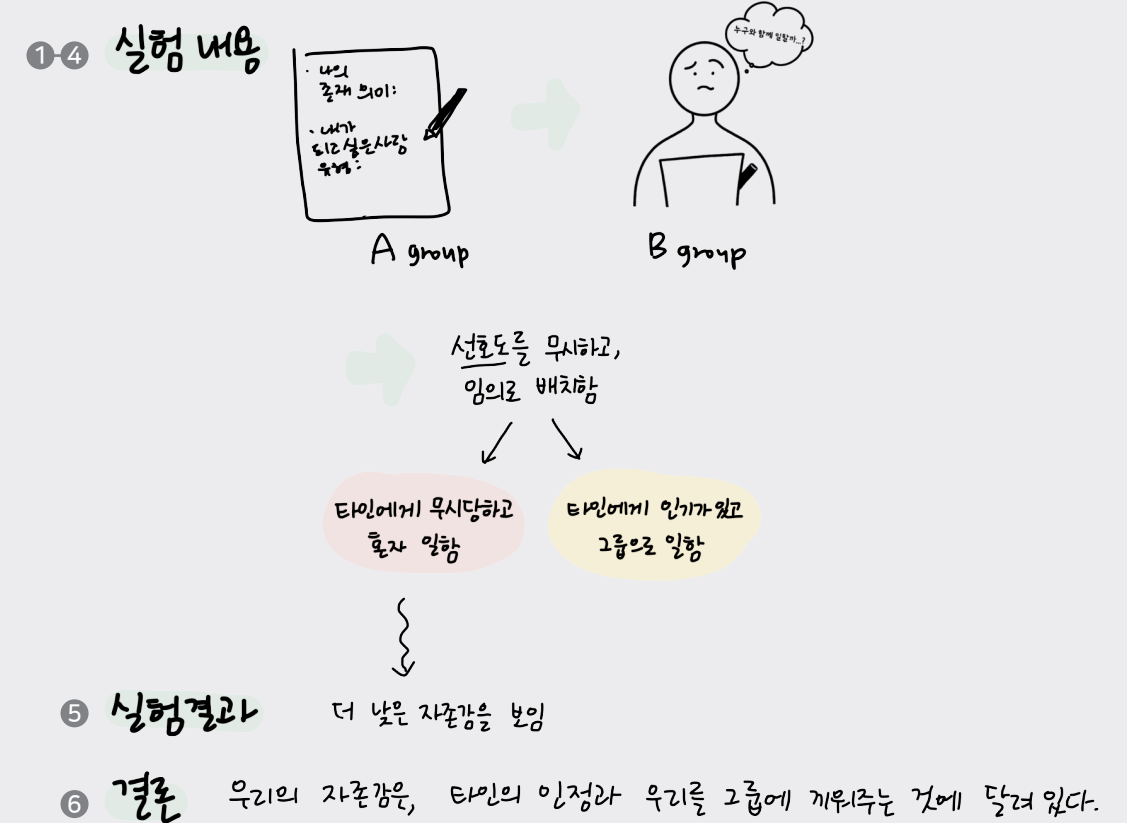 1-4 실험 내용
· 나의
존재 의미:
· 내가
되고 싶은 사람
유형:
누구와 함께 일할까...?
A group
B group
선호도를 무시하고,
임의로 배치함
타인에게 무시당하고
혼자 일함
타인에게 인기가 있고
그룹으로 일함
5 실험결과
더 낮은 자존감을 보임
6 결론
우리의 자존감은, 타인의 인정과 우리를 그룹에 끼워주는 것에 달려 있다.